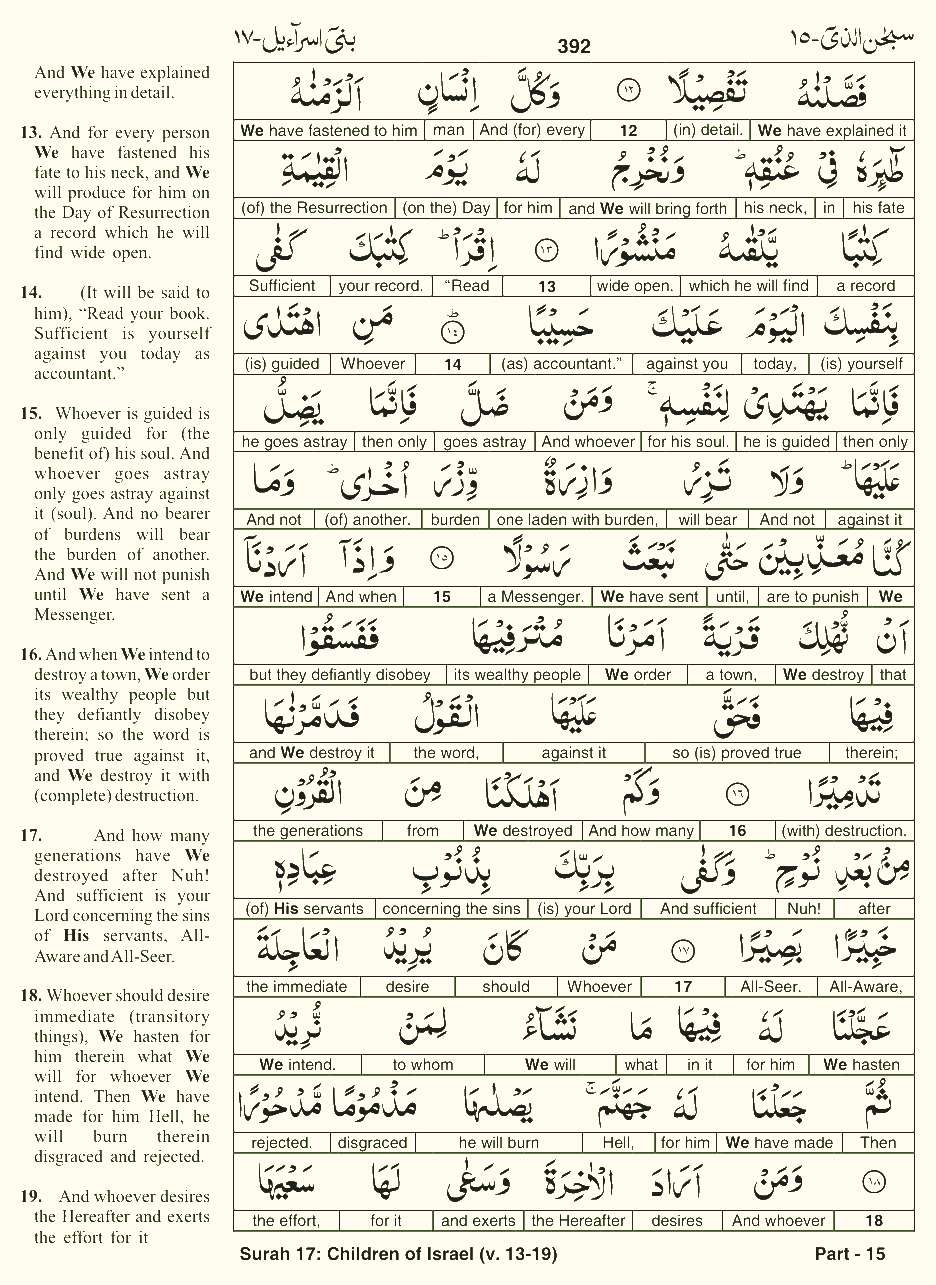 بنیٓ اسرآءیل-١٧
392
سبحٰن الذیٓ-١٥
And We have explained
everything in detail.
13. And for every person
We have fastened his
fate to his neck, and We
will produce for him on
the Day of Resurrection
a record which he will
find wide open.
14. (It will be said to
him), “Read your book.
Sufficient is yourself
against you today as
accountant.”
15. Whoever is guided is
only guided for (the
benefit of) his soul. And
whoever goes astray
only goes astray against
it (soul). And no bearer
of burdens will bear
the burden of another.
And We will not punish
until We have sent a
Messenger.
16. And when We intend to
destroy a town, We order
its wealthy people but
they defiantly disobey
therein; so the word is
proved true against it,
and We destroy it with
(complete) destruction.
17. And how many
generations have We
destroyed after Nuh!
And sufficient is your
Lord concerning the sins
of His servants, All-
Aware and All-Seer.
18. Whoever should desire
immediate (transitory
things), We hasten for
him therein what We
will for whoever We
intend. Then We have
made for him Hell, he
will burn therein
disgraced and rejected.
19. And whoever desires
the Hereafter and exerts
the effort for it
فَصَّلْنٰهُ تَفْصِيْلًا ١٢ وَكُلَّ اِنْسَانٍ اَلْزَمْنٰهُ
We have fastened to him man And (for) every 12 (in) detail. We have explained it
طٰٓئِرَهٗ فِيْ عُنُقِهٖ ؕ وَنُخْرِجُ لَهٗ يَوْمَ الْقِيٰمَةِ
(of) the Resurrection (on the) Day for him and We will bring forth his neck, in his fate
كِتٰبًا يَّلْقٰىهُ مَنْشُوْرًا ١٣ اِقْرَاْ كِتٰبَكَ ؕ كَفٰى
Sufficient your record. “Read 13 wide open. which he will find a record
بِنَفْسِكَ الْيَوْمَ عَلَيْكَ حَسِيْبًا ؕ ١٤ مَنِ اهْتَدٰى
(is) guided Whoever 14 (as) accountant.” against you today, (is) yourself
فَاِنَّمَا يَهْتَدِىْ لِنَفْسِهٖ ۚ وَمَنْ ضَلَّ فَاِنَّمَا يَضِلُّ
he goes astray then only goes astray And whoever for his soul. he is guided then only
عَلَيْهَا ؕ وَلَا تَزِرُ وَازِرَةٌ وِّزْرَ اُخْرٰى ؕ وَمَا
And not (of) another. burden one laden with burden, will bear And not against it
كُنَّا مُعَذِّبِيْنَ حَتّٰى نَبْعَثَ رَسُوْلًا ١٥ وَاِذَاۤ اَرَدْنَاۤ
We intend And when 15 a Messenger. We have sent until, are to punish We
اَنْ نُّهْلِكَ قَرْيَةً اَمَرْنَا مُتْرَفِيْهَا فَفَسَقُوْا
but they defiantly disobey its wealthy people We order a town, We destroy that
فِيْهَا فَحَقَّ عَلَيْهَا الْقَوْلُ فَدَمَّرْنٰهَا
and We destroy it the word, against it so (is) proved true therein;
تَدْمِيْرًا ١٦ وَكَمْ اَهْلَكْنَا مِنَ الْقُرُوْنِ
the generations from We destroyed And how many 16 (with) destruction.
مِنْۢ بَعْدِ نُوْحٍ ؕ وَكَفٰى بِرَبِّكَ بِذُنُوْبِ عِبَادِهٖ
(of) His servants concerning the sins (is) your Lord And sufficient Nuh! after
خَبِيْرًۢا بَصِيْرًا ١٧ مَنْ كَانَ يُرِيْدُ الْعَاجِلَةَ
the immediate desire should Whoever 17 All-Seer. All-Aware,
عَجَّلْنَا لَهٗ فِيْهَا مَا نَشَآءُ لِمَنْ نُّرِيْدُ
We intend. to whom We will what in it for him We hasten
ثُمَّ جَعَلْنَا لَهٗ جَهَنَّمَ ۚ يَصْلٰىهَا مَذْمُوْمًا مَّدْحُوْرًا
rejected. disgraced he will burn Hell, for him We have made Then
١٨ وَمَنْ اَرَادَ الْاٰخِرَةَ وَسَعٰى لَهَا سَعْيَهَا
the effort, for it and exerts the Hereafter desires And whoever 18
Surah 17: Children of Israel (v. 13-19)
Part - 15